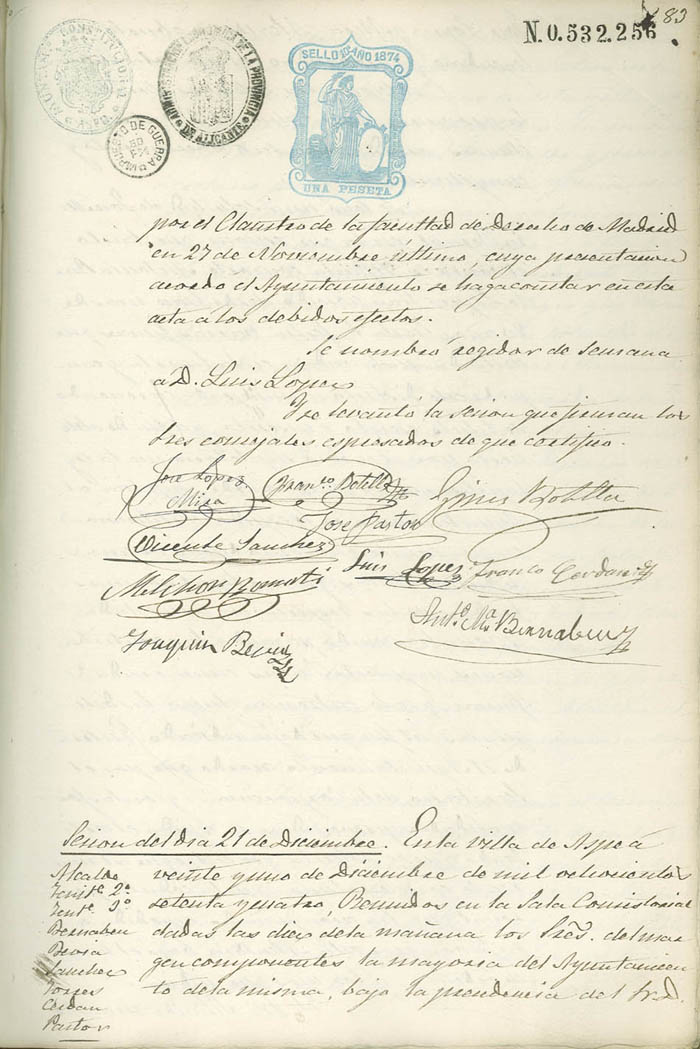 83
N.0.532.256
SELLO 10º AÑO 1874
UNA PESETA
ADMINISTRACION ECONOMICA DE LA PROVINCIA DE ALICANTE
IMPUESTO DE GUERRA
por el Claustro de la facultad de derecho de Madrid
en 27 de Noviembre último, cuya presentacion
acordo el Ayuntamiento se haga constar en esta
acta a los debidos efectos.
Se nombró regidor de semana
a D. Luis Lopez
Y se levantó la sesion que firman los
Sres concejales espresados de que certifico.
Jose Lopez
Mira
Franco. Botella
Gines Botella
Jose Pastor
Vicente Sanchez
Luis Lopez
Franco Cerdan
Melchor
Anto. Ma. Bernabeu
Joaquin
Sesion del dia 21 de Diciembre. En la villa de Aspe á
Alcalde veinte y uno de diciembre de mil ochocientos
Tente. 2º setenta y cuatro, Reunidos en la Sala Consistorial
Bernabeu dadas las diez de la mañana los Sres. del mar
Sanchez gen componentes la mayoria del Ayuntamien
Torres to de la misma, bajo la presidencia del Sr. D.
Cerdan
Pastor